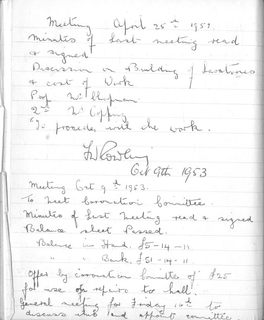 Meeting April 25th 1953.
Minutes of Last meeting read
& signed
Discussion on Building of Lavatories
& cost of Work
Prop Mr Chapman
2nd Mr Copping
To proceed with the work.
Oct 9th 1953
Meeting Oct 9th 1953.
To meet Coronation Committee.
Minutes of Last Meeting read & signed
Balance sheet Passed.
Balance in Hand. £5-14-11
" " Bank. £61-14-11
Offer by coronation Committee of £25
for use on repairs to hall.
General meeting for Friday 16th to
discuss and appoint committee.